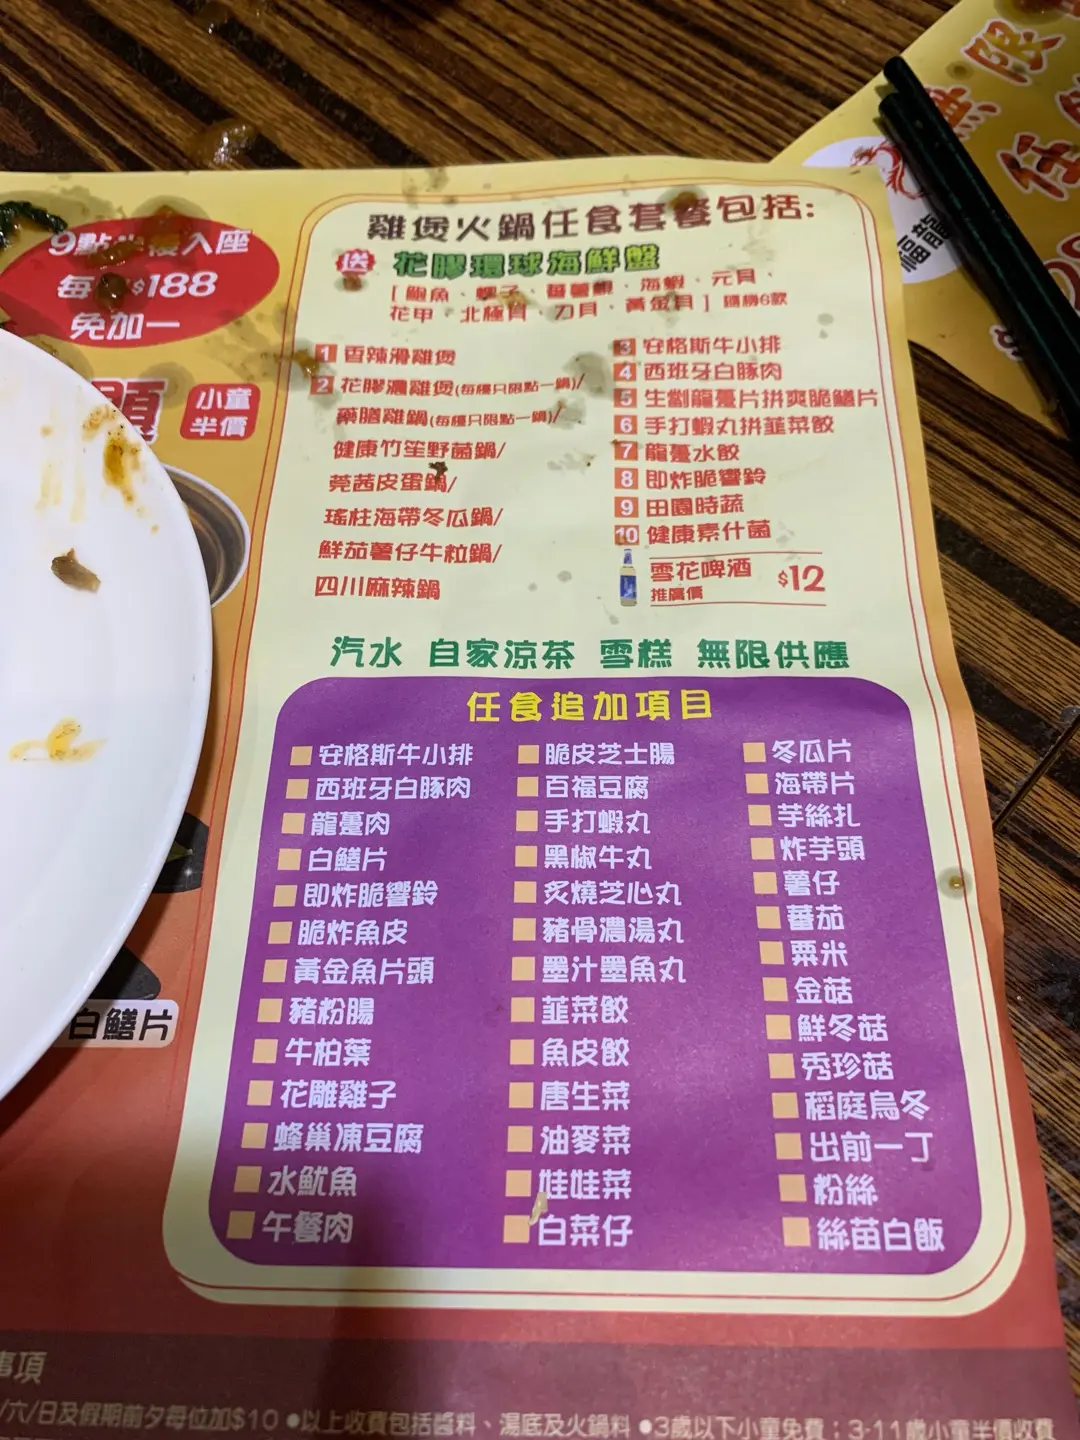 9點半後入座
每位$188
免加一
小童
半價
白鱔片
雞煲火鍋任食套餐包括:
送 花膠環球海鮮盤
[ 鮑魚、螺子、蕃薯蜆、海蝦、元貝、
花甲、北極貝、刀貝、黃金貝 ] 隨機6款
1 香辣滑雞煲
2 花膠濃雞煲(每檯只限點一鍋)/
藥膳雞鍋(每檯只限點一鍋)/
健康竹笙野菌鍋/
莞茜皮蛋鍋/
瑤柱海帶冬瓜鍋/
鮮茄薯仔牛粒鍋/
四川麻辣鍋
3 安格斯牛小排
4 西班牙白豚肉
5 生劏龍躉片拼爽脆鱔片
6 手打蝦丸拼韮菜餃
7 龍躉水餃
8 即炸脆響鈴
9 田園時蔬
10 健康素什菌
雪花啤酒
推廣價
$12
汽水 自家涼茶 雪糕 無限供應
任食追加項目
安格斯牛小排
西班牙白豚肉
龍躉肉
白鱔片
即炸脆響鈴
脆炸魚皮
黃金魚片頭
豬粉腸
牛柏葉
花雕雞子
蜂巢凍豆腐
水魷魚
午餐肉
脆皮芝士腸
百福豆腐
手打蝦丸
黑椒牛丸
炙燒芝心丸
豬骨濃湯丸
墨汁墨魚丸
韮菜餃
魚皮餃
唐生菜
油麥菜
娃娃菜
白菜仔
冬瓜片
海帶片
芋絲扎
炸芋頭
薯仔
蕃茄
粟米
金菇
鮮冬菇
秀珍菇
稻庭烏冬
出前一丁
粉絲
絲苗白飯
事項
/六/日及假期前夕每位加$10 ●以上收費包括醬料、湯底及火鍋料 ●3歲以下小童免費；3-11歲小童半價收費
無限
任
龍
福